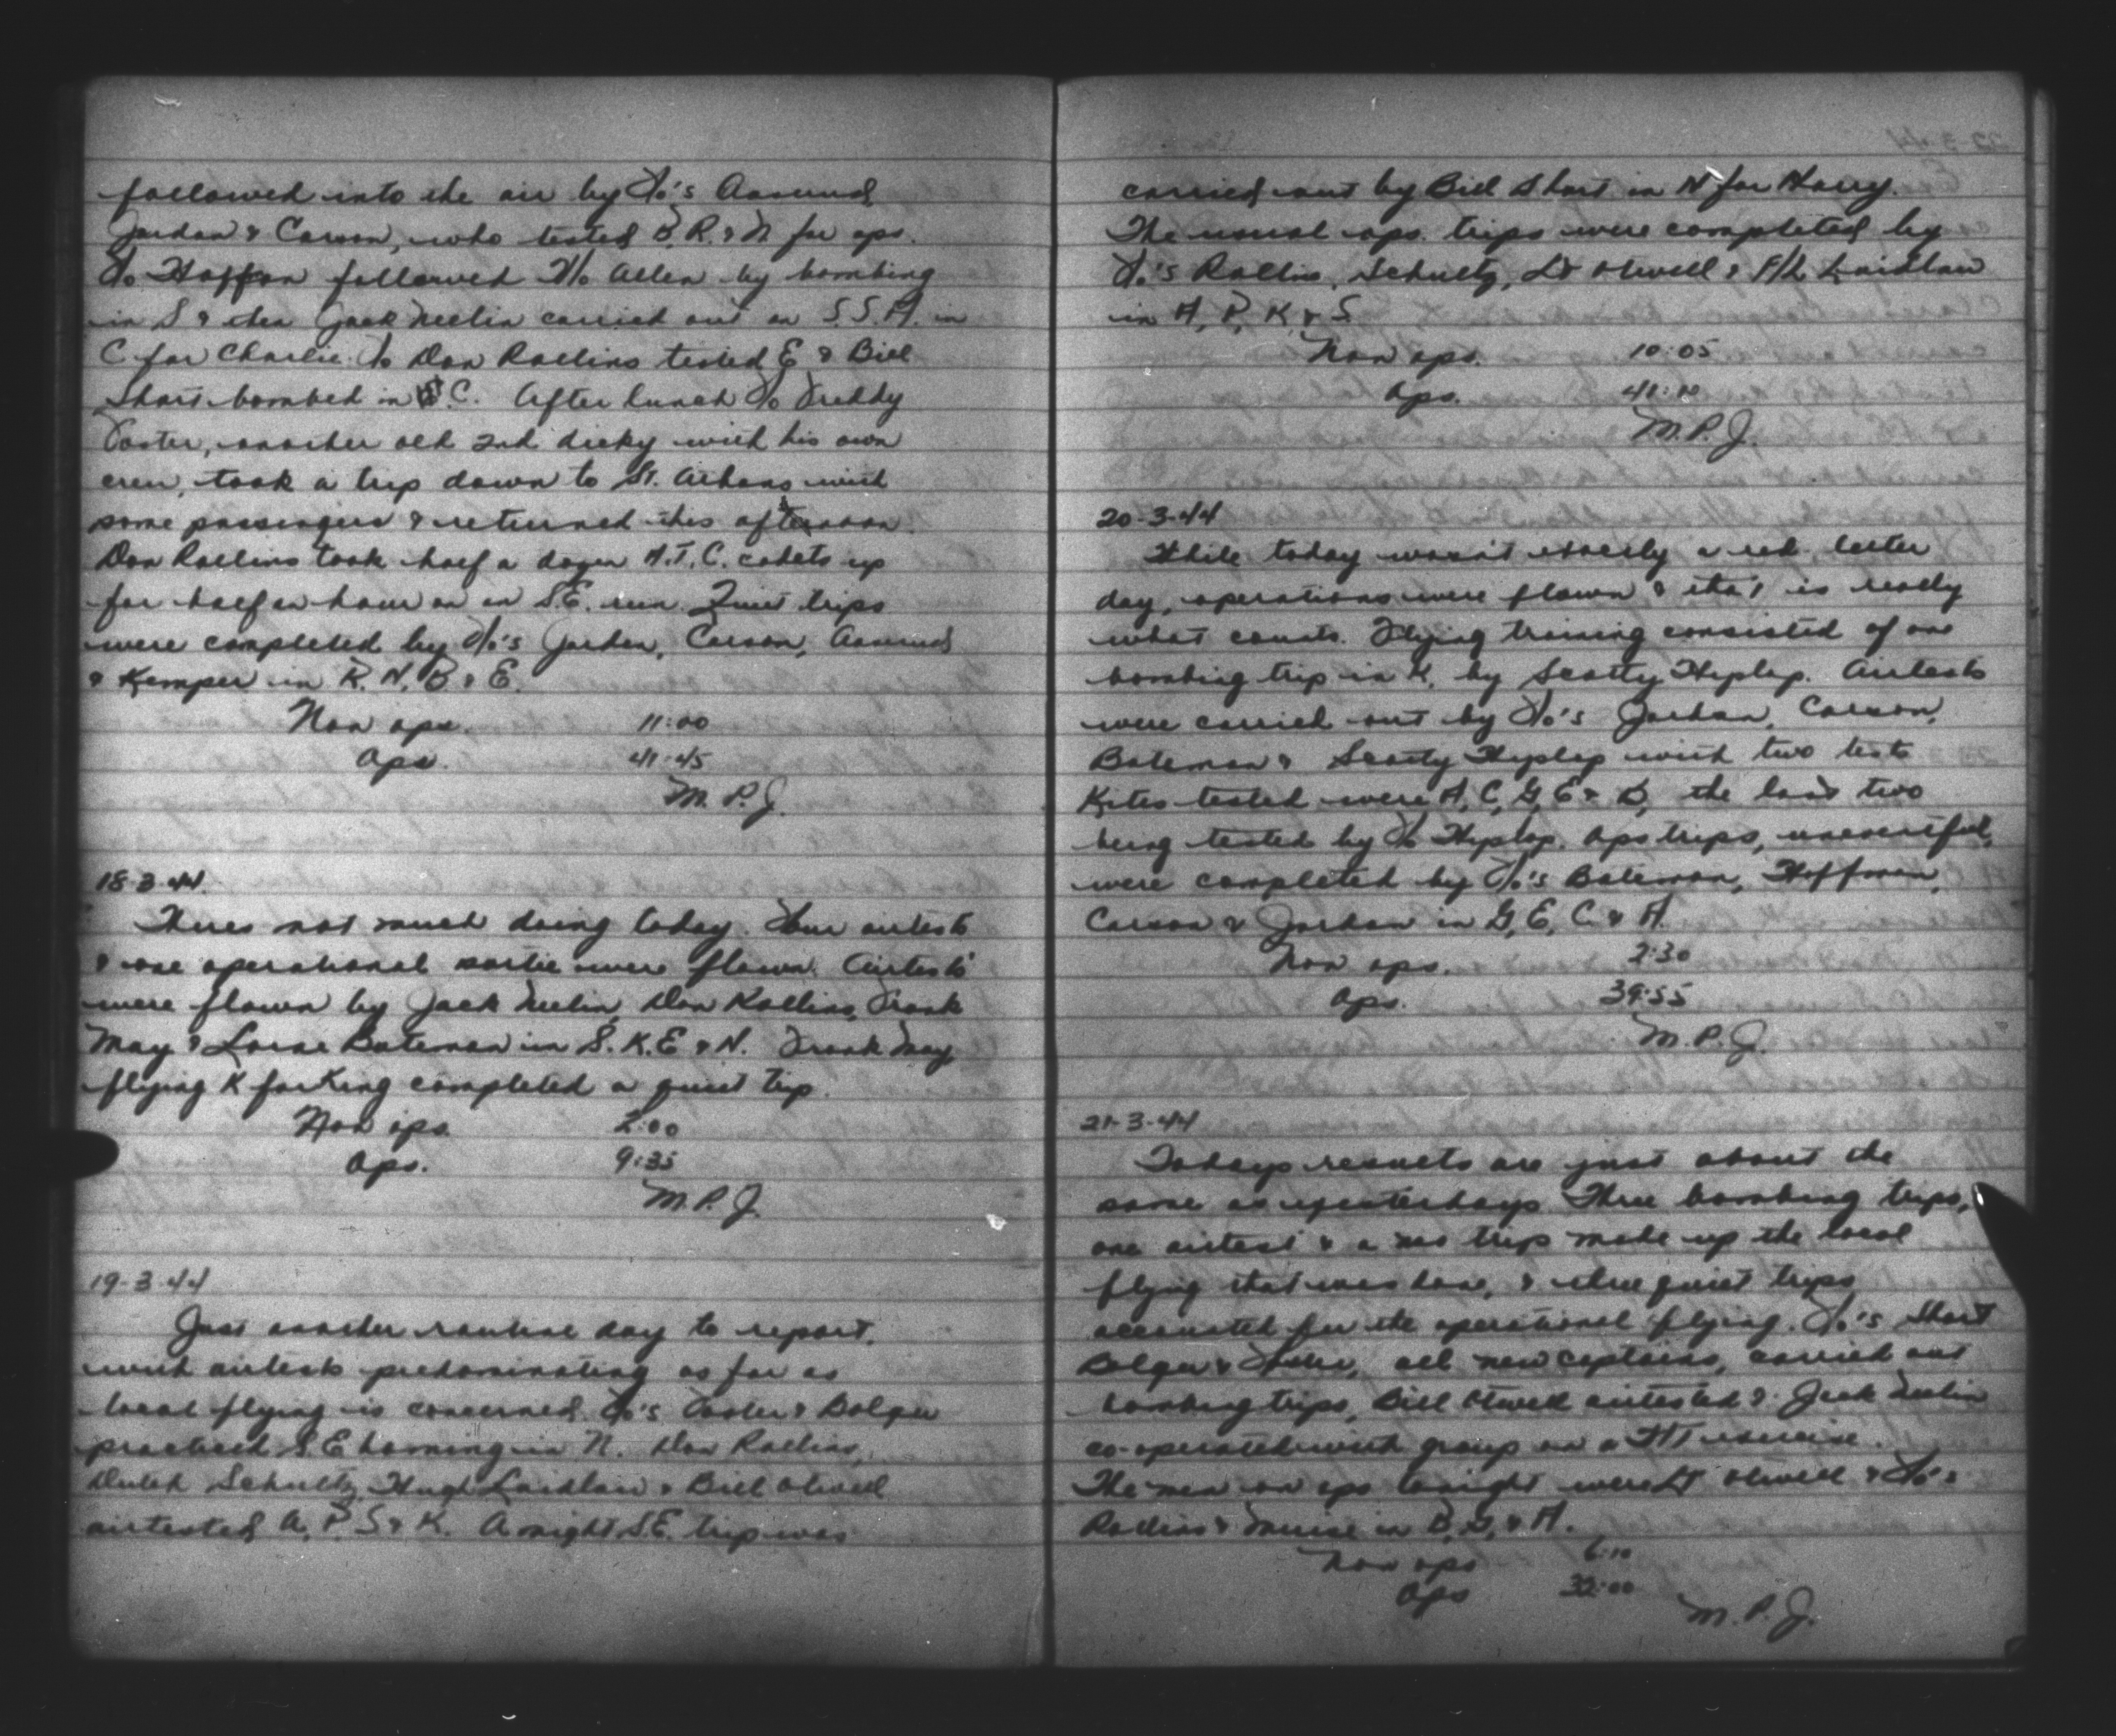 followed into the air by F/o's Aamund,
Jordan & Carson, who tested B, R. & N for ops.
F/o Hoffman followed F/o Allen by bombing
in S & then Jack Neelin carried out an S.S.A. in
C for Charlie. F/o Don Rollins tested E & Bill
Short bombed in C. After lunch F/o Freddy
Foster, another old 2nd dicky with his own
crew, took a trip down to St. Athans with
some passengers & returned this afternoon.
Don Rollins took half a dozen A.T.C. cadets up
for half an hour on an S.E. run. Quiet trips
were completed by F/o's Jordan, Carson, Aamund
& Kemper in R. N, B & E.
Non ops. 11:00
Ops. 41:45
M. P. J.
18-3-44.
Theres not much doing today. Four airtests
& one operational sortie were flown. Airtests
were flown by Jack Neelin, Don Rollins, Frank
May & Lorne Bateman in S. K. E & N. Frank May
flying K for King completed a quiet trip.
Non ops 2:00
Ops. 9:35
M. P. J.
19-3-44
Just another routine day to report,
with airtests predominating as far as
local flying is concerned. F/o's Foster & Bolger
practised S.E homing in N. Don Rollins,
Dutch Schultz, Hugh Laidlaw & Bill Olwell
airtested A, P, S & K. A night S.E. trip was
carried out by Bill Short in N for Harry.
The usual ops. trips were completed by
F/o's Rollins, Schultz, Lt Olwell & F/L Laidlaw
in A, P, K & S.
Non ops. 10:05
Ops. 41:10
M. P. J.
20-3-44
While today wasn't exactly a red letter
day, operations were flown & that is really
what counts. Flying training consisted of one
bombing trip in K, by Scotty Hyslop. Airtests
were carried out by F/o's Jordan, Carson,
Bateman & Scotty Hyslop with two tests
Kites tested were A, C, G, E & B, the last two
being tested by F/o Hyslop. Ops trips, uneventful,
were completed by F/o's Bateman, Hoffman,
Carson & Jordan in G, E, C & A.
Non ops. 2:30
Ops. 39:55
M. P. J.
21-3-44
Todays results are just about the
same as yesterdays. Three bombing trips,
one airtest & a trip made up the local
flying that was done, & three quiet trips
accounted for the operational flying. F/o's Short
Bolger & Foster, all new captains, carried out
bombing trips, Bill Olwell airtested & Jack Neelin
co-operated with group on a exercise.
The men on ops tonight were Lt Olwell & F/o's
Rollins & Muise in B, G, & A.
Non ops 6:10
Ops 32:00
M. P. J.